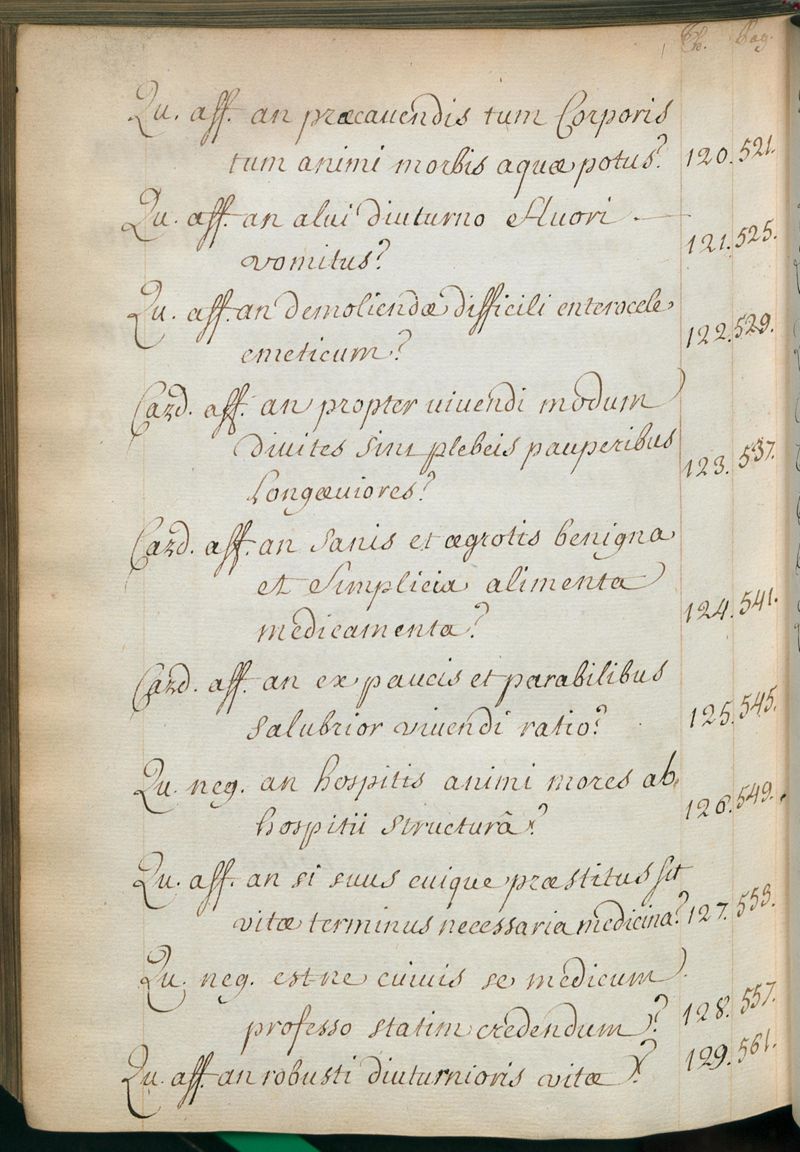 Th. Pag.
Qu. aff. an præcauendis tum Corporis
tum animi morbis aquæ potus? 120. 521.
Qu. aff. an alui diuturno fluori
vomitus? 121. 525.
Qu. aff. an demoliendæ difficili enterocele
emeticum? 122. 529.
Card. aff. an propter viuendi modum
diuites sint plebeis pauperibus
longæuiores? 123. 537.
Card. aff. an sanis et ægrotis benigna
et simplicia alimenta
medicamenta? 124. 541.
Card. aff. an ex paucis et parabilibus
salubrior viuendi ratio? 125. 545.
Qu. neg. an hospitis animi mores ab
hospitii structurâ? 126. 549.
Qu. aff. an si suus cuique præstitus sit
vitæ terminus necessaria medicina? 127. 553.
Qu. neg. est ne cuiuis se medicum
professo statim credendum? 128. 557.
Qu. aff. an robusti diuturnioris vitæ? 129. 561.